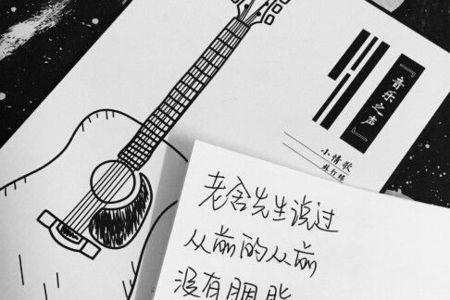 「音乐之声」
小情歌
老舍先生说过
从前的从前
没有胭脂